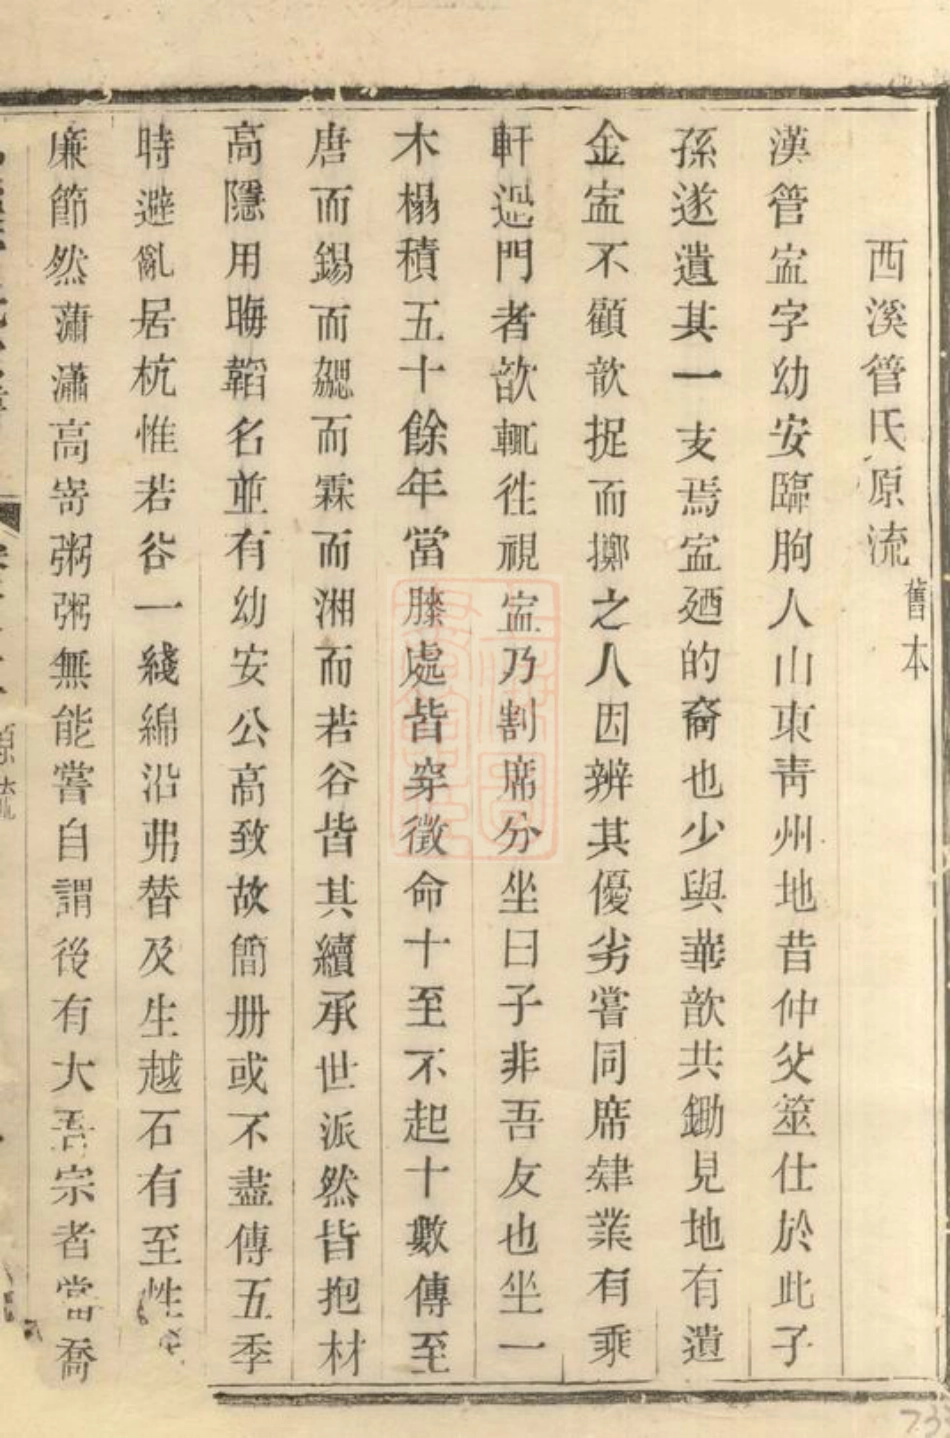 西溪管氏原流舊本
漢管寍字幼安臨朐人山東靑州地昔仲父筮仕於此子
孫遂遺其一支焉寍廼的裔也少與華歆共鋤見地有遺
金寍不顧歆捉而擲之人因辨其優劣嘗同席肄業有乘
軒過門者歆輒徃視寍乃割席分坐曰子非吾友也坐一
木榻積五十餘年當膝處皆穿徵命十至不起十數傳至
唐而錫而勰而霖而湘而若谷皆其續承世派然皆抱材
高隱用晦韜名並有幼安公高致故簡册或不盡傳五季
時避亂居杭惟若谷一綫綿沿弗替及生越石有至性
廉節然蕭瀟高寄粥粥無能嘗自謂後有大吾宗者當喬